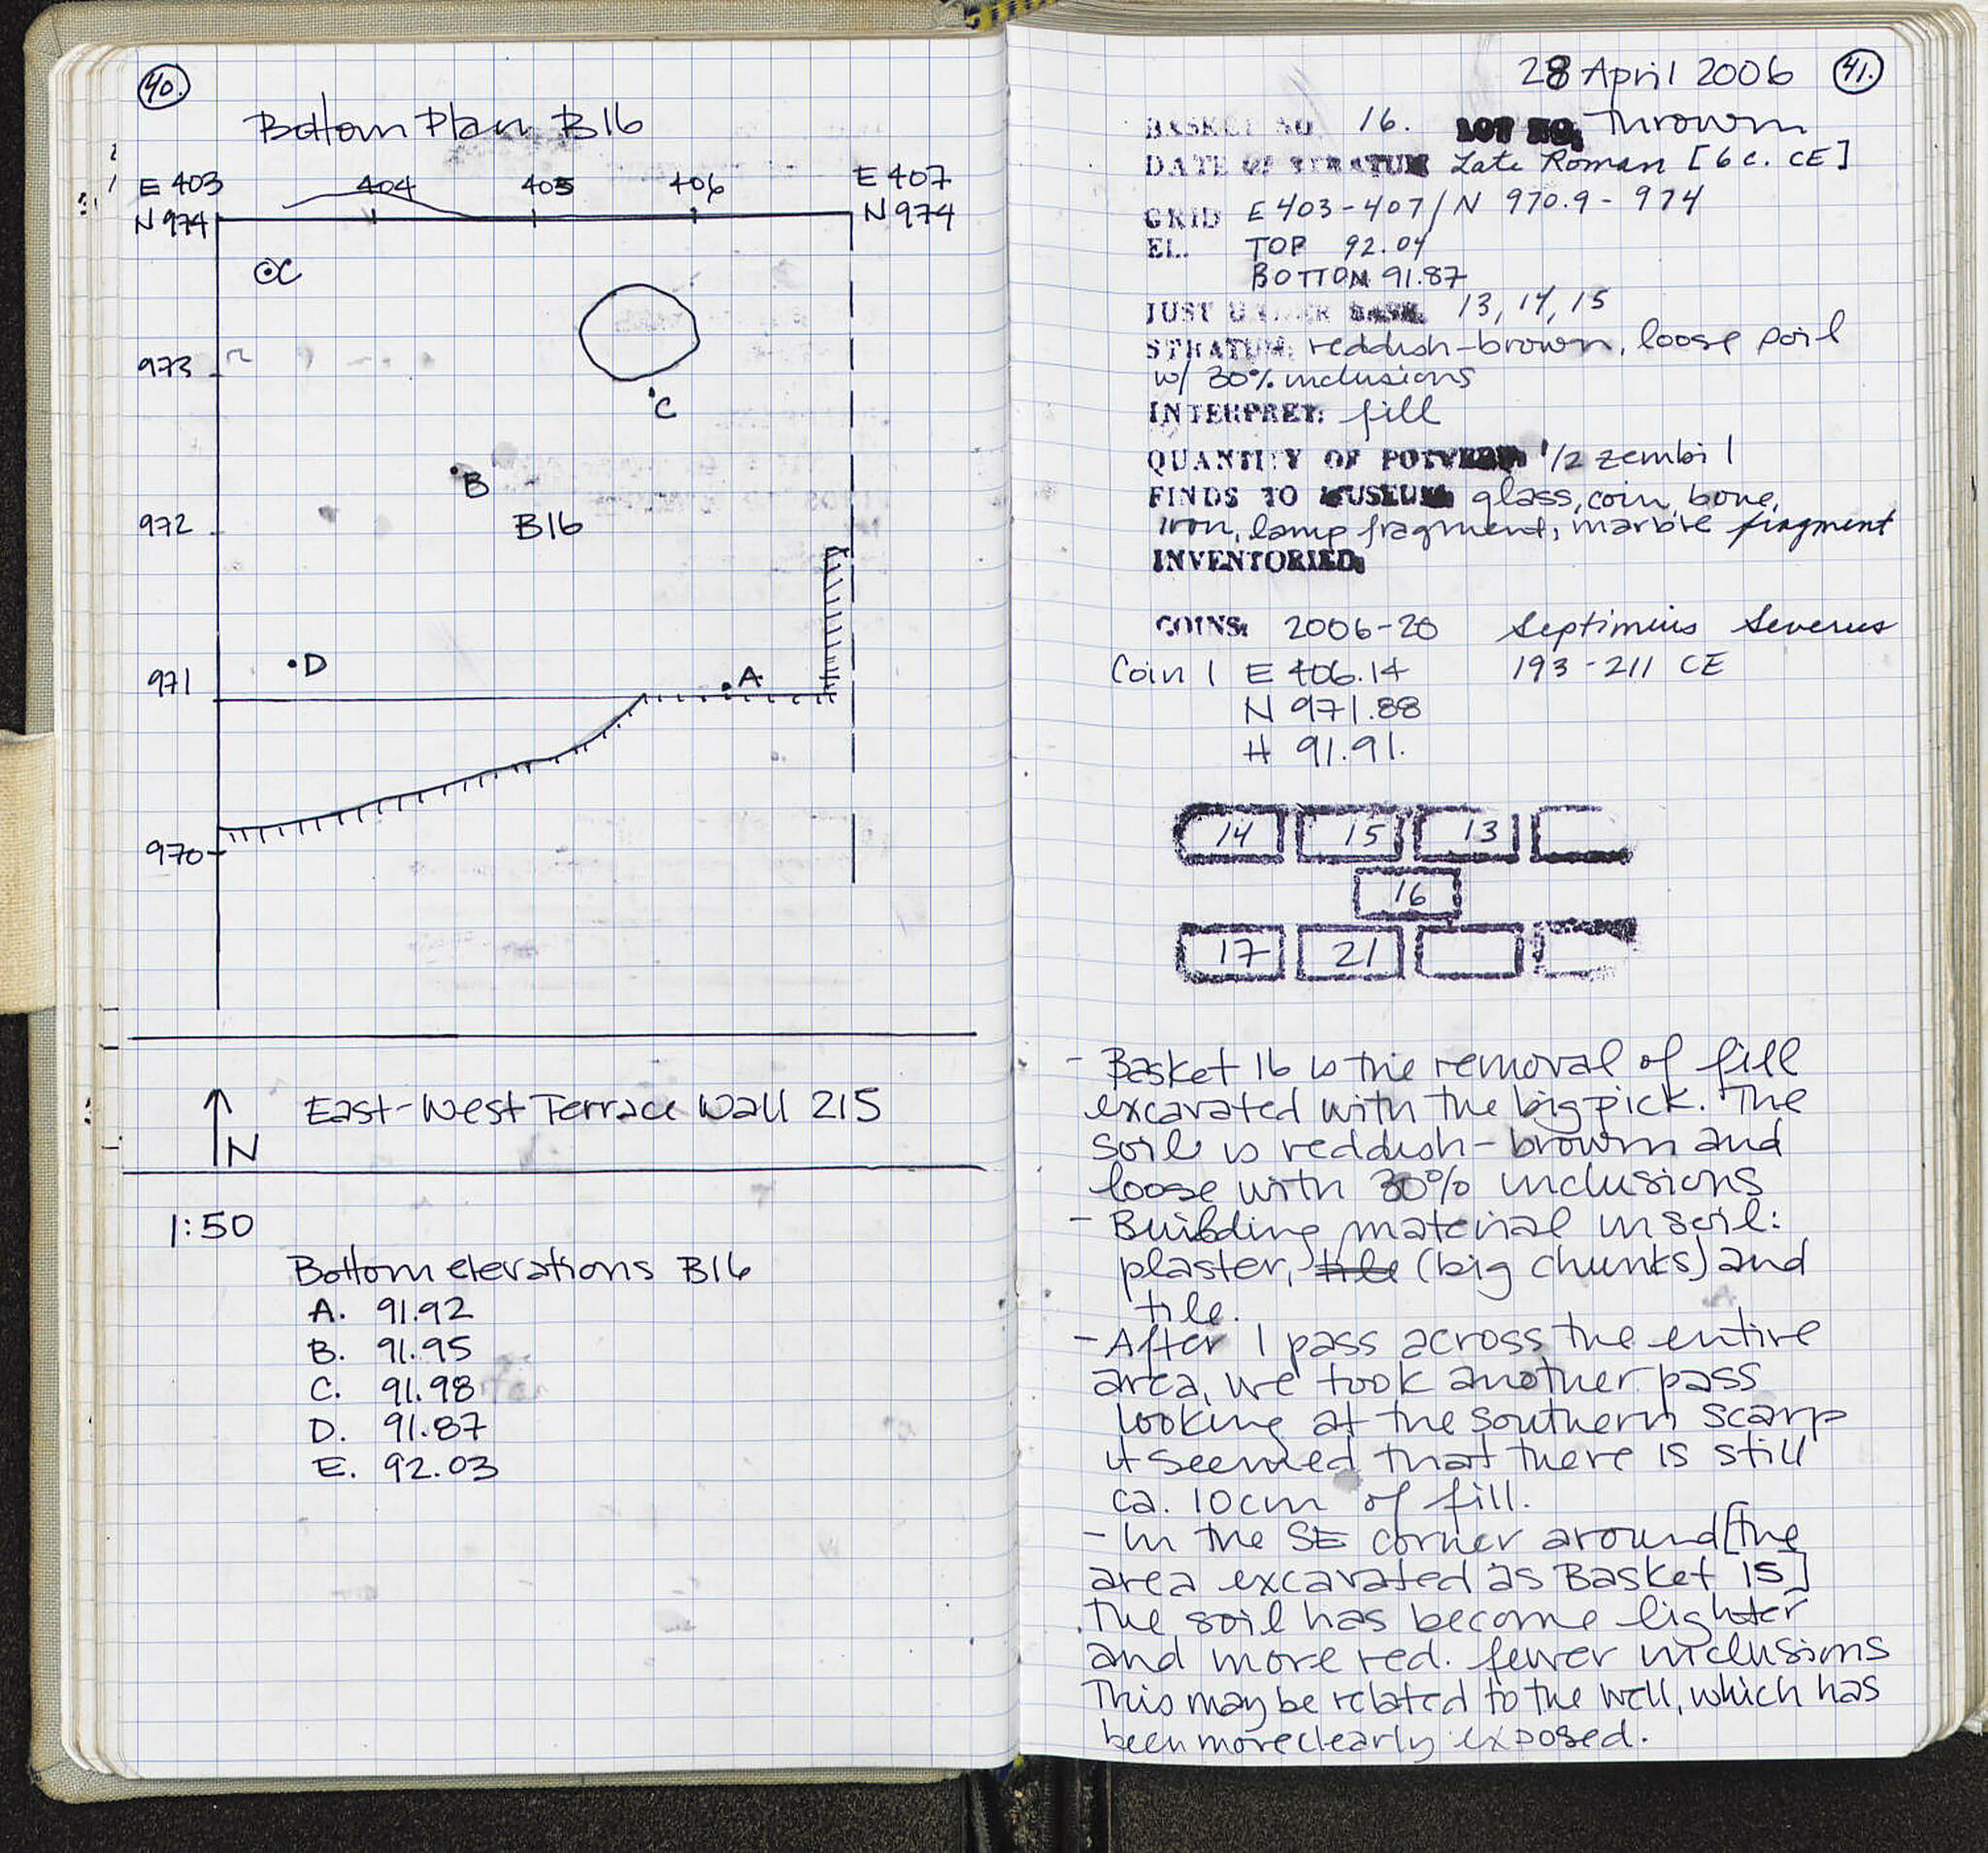 40.
Bottom Plan B16
E 403 404 405 406 E 407
N 974 N 974
C
973
C
B
972 B16
D
971 A
970
N East-West Terrace Wall 215
1:50
Bottom elevations B16
A. 91.92
B. 91.95
C. 91.98
D. 91.87
E. 92.03
28 April 2006 41.
BASKET NO 16. LOT NO. Thrown
DATE OF STRATUM Late Roman [6 c. CE]
GRID E 403-407/N 970.9-974
EL. TOP 92.04
BOTTON 91.87
JUST UNDER BASK. 13, 14, 15
STRATUM: reddish-brown, loose soil
w/ 30% inclusions
INTERPRET: fill
QUANTITY OF POTTERY 1/2 zembil
FINDS TO MUSEUM glass, coin, bone,
iron, lamp fragment, marble fragment
INVENTORIED:
COINS: 2006-20 Septimius Severus
Coin 1 E 406.14 193-211 CE
N 971.88
H 91.91.
14 15 13
16
17 21
- Basket 16 is the removal of fill
excavated with the big pick. The
soil is reddish-brown and
loose with 30% inclusions
- Building material in soil:
plaster, tile (big chunks) and
tile.
- After 1 pass across the entire
area, we took another pass
looking at the southern scarp
it seemed that there is still
ca. 10cm of fill.
- In the SE corner around [the
area excavated as Basket 15]
the soil has become lighter
and more red. fewer inclusions
This may be related to the well, which has
been more clearly exposed.